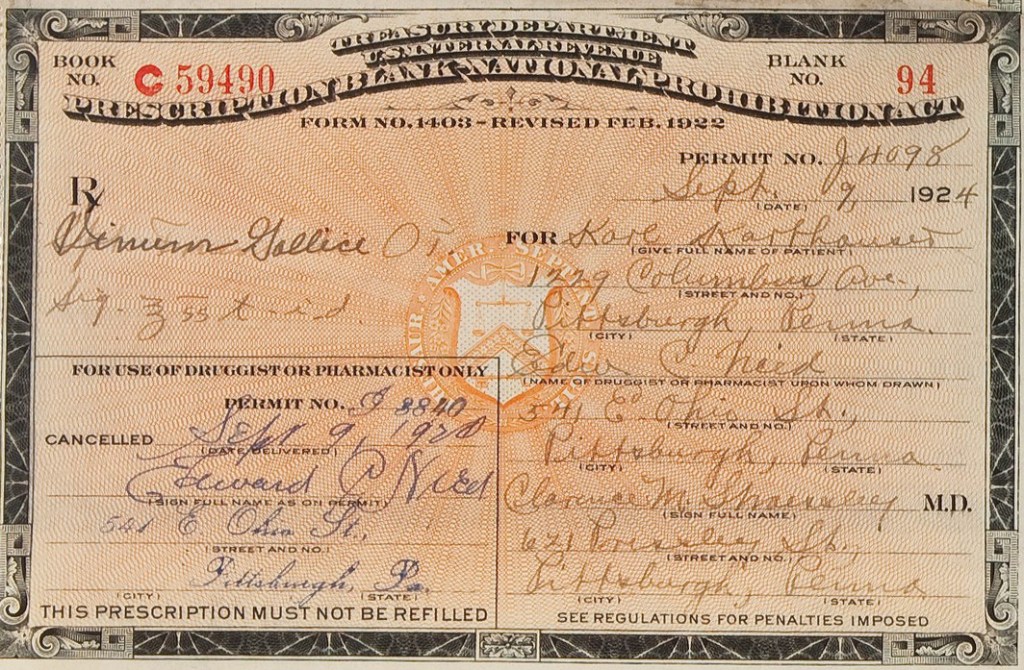 TREASURY DEPARTMENT
U.S. INTERNAL REVENUE
BOOK NO. C 59490
BLANK NO. 94
PRESCRIPTION BLANK-NATIONAL PROHIBITION ACT
FORM NO. 1403-REVISED FEB. 1922
PERMIT NO. J 4098
Rx
Sept. 9, 1924
(DATE)
FOR Karl
(GIVE FULL NAME OF PATIENT)
1229 Columbus Ave.,
(STREET AND NO.)
Sig. t-i-d.
Pittsburgh, Penna.
(CITY) (STATE)
Edw C. Nied
(NAME OF DRUGGIST OR PHARMACIST UPON WHOM DRAWN)
541 E. Ohio St.,
(STREET AND NO.)
Pittsburgh, Penna.
(CITY) (STATE)
Clarence M.
M.D.
(SIGN FULL NAME)
621 Pressley St.,
(STREET AND NO.)
Pittsburgh, Penna
(CITY) (STATE)
SEE REGULATIONS FOR PENALTIES IMPOSED
FOR USE OF DRUGGIST OR PHARMACIST ONLY
PERMIT NO. 8840
CANCELLED Sept 9,
(DATE DELIVERED)
Edward C Nied
(SIGN FULL NAME AS ON PERMIT)
541 E. Ohio St.,
(STREET AND NO.)
Pittsburgh, Pa.
(CITY) (STATE)
THIS PRESCRIPTION MUST NOT BE REFILLED